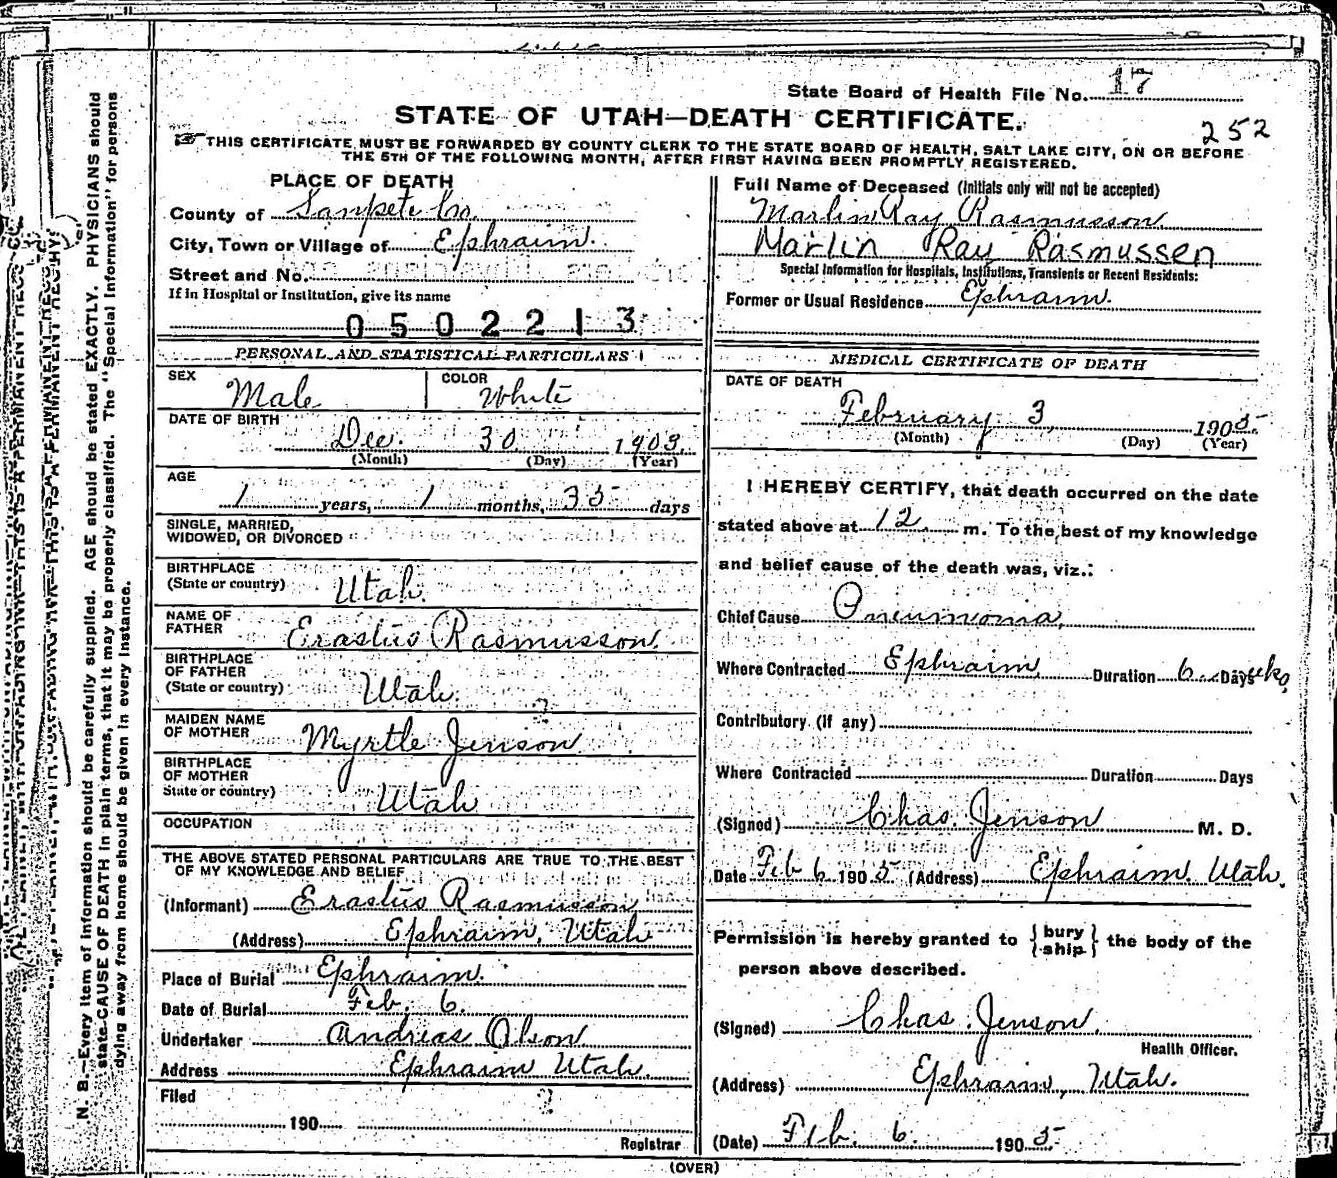 State Board of Health File No. 17
STATE OF UTAH—DEATH CERTIFICATE.
252
THIS CERTIFICATE MUST BE FORWARDED BY COUNTY CLERK TO THE STATE BOARD OF HEALTH, SALT LAKE CITY, ON OR BEFORE
THE 5TH OF THE FOLLOWING MONTH, AFTER FIRST HAVING BEEN PROMPTLY REGISTERED.
PLACE OF DEATH
County of Sanpete Co.
City, Town or Village of Ephraim.
Street and No.
If in Hospital or Institution, give its name
0502213
PERSONAL AND STATISTICAL PARTICULARS
SEX Male
COLOR White
DATE OF BIRTH
Dec. 30 1903.
(Month) (Day) (Year)
AGE
1 years, 1 months, 35 days
SINGLE, MARRIED,
WIDOWED, OR DIVORCED
BIRTHPLACE
(State or country) Utah.
NAME OF
FATHER Erastus Rasmusson.
BIRTHPLACE
OF FATHER
(State or country) Utah.
MAIDEN NAME
OF MOTHER Myrtle Jenson
BIRTHPLACE
OF MOTHER
State or country) Utah
OCCUPATION
THE ABOVE STATED PERSONAL PARTICULARS ARE TRUE TO THE BEST
OF MY KNOWLEDGE AND BELIEF
(Informant) Erastus Rasmusson
(Address) Ephraim, Utah
Place of Burial Ephraim.
Date of Burial Feb. 6.
Undertaker Andreas Olson
Address Ephraim Utah.
Filed
190
Registrar
Full Name of Deceased (Initials only will not be accepted)
Marlin Ray Rasmusson
Marlin Ray Rasmussen
Special Information for Hospitals, Institutions, Transients or Recent Residents:
Former or Usual Residence Ephraim.
MEDICAL CERTIFICATE OF DEATH
DATE OF DEATH
February 3, 1905.
(Month) (Day) (Year)
I HEREBY CERTIFY, that death occurred on the date
stated above at 12 m. To the best of my knowledge
and belief cause of the death was, viz.:
Chief Cause Pneumonia,
Where Contracted Ephraim, Duration 6 Days wks,
Contributory (if any)
Where Contracted Duration Days
(Signed) Chas. Jenson M. D.
Date Feb 6 1905 (Address) Ephraim Utah.
Permission is hereby granted to { bury ship } the body of the
person above described.
(Signed) Chas. Jenson.
Health Officer.
(Address) Ephraim, Utah.
(Date) Feb. 6. 1905.
(OVER)
N. B.—Every item of information should be carefully supplied. AGE should be stated EXACTLY. PHYSICIANS should
state CAUSE OF DEATH in plain terms, that it may be properly classified. The "Special Information" for persons
dying away from home should be given in every instance.